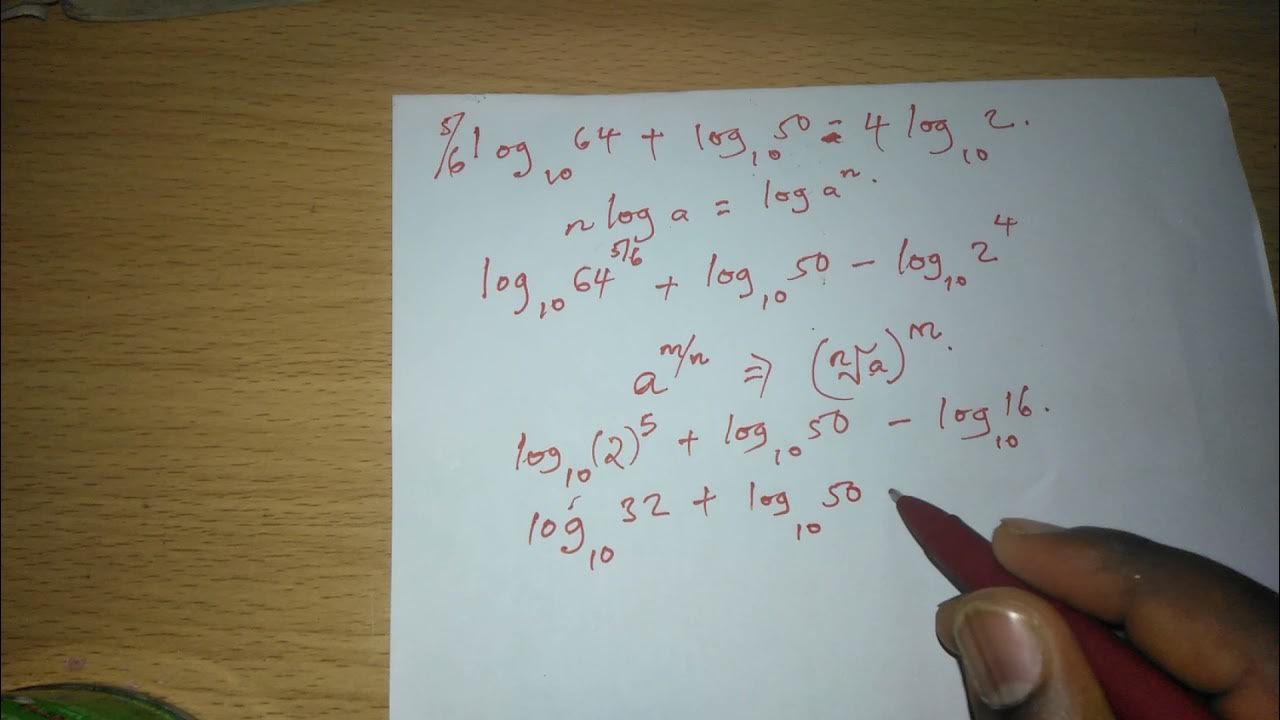 5/6 log₁₀ 64 + log₁₀ 50 = 4 log₁₀ 2.
n log a = log aⁿ.
log₁₀ 64^5/6 + log₁₀ 50 − log₁₀ 2⁴
a^m/n ⇒ (ⁿ√a)^m.
log₁₀ (2)⁵ + log₁₀ 50 − log₁₀ 16.
log₁₀ 32 + log₁₀ 50